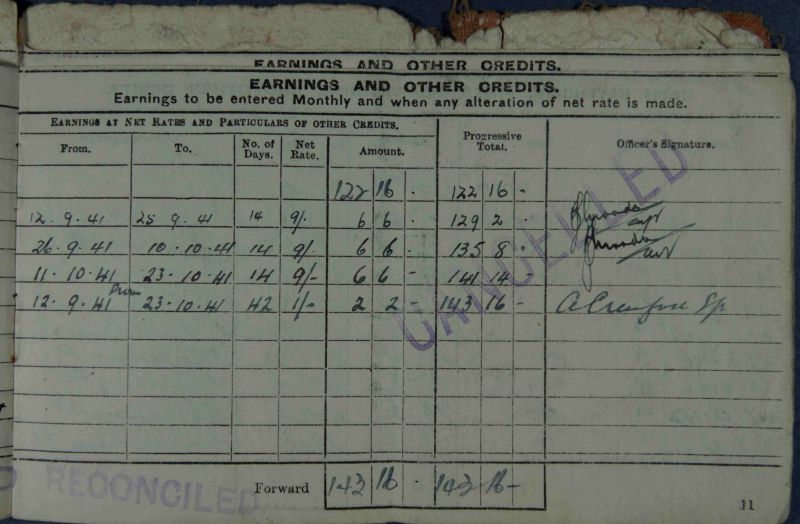 EARNINGS AND OTHER CREDITS.
EARNINGS AND OTHER CREDITS.
Earnings to be entered Monthly and when any alteration of net rate is made.
EARNINGS AT NET RATES AND PARTICULARS OF OTHER CREDITS.
From. To. No. of Days. Net Rate. Amount. Progressive Total. Officer's Signature.
122 16 . 122 16 -
12. 9. 41 25 9. 41 14 9/- 6 6 . 129 2 . Capt
26. 9. 41 10. 10. 41 14 9/- 6 6 . 135 8 .
11. 10. 41 23. 10. 41 14 9/- 6 6 - 141 14 -
12. 9. 41 23. 10. 41 42 1/- 2 2 - 143 16 -
CANCELLED
Forward 143 16 . 143 16 -
RECONCILED
11